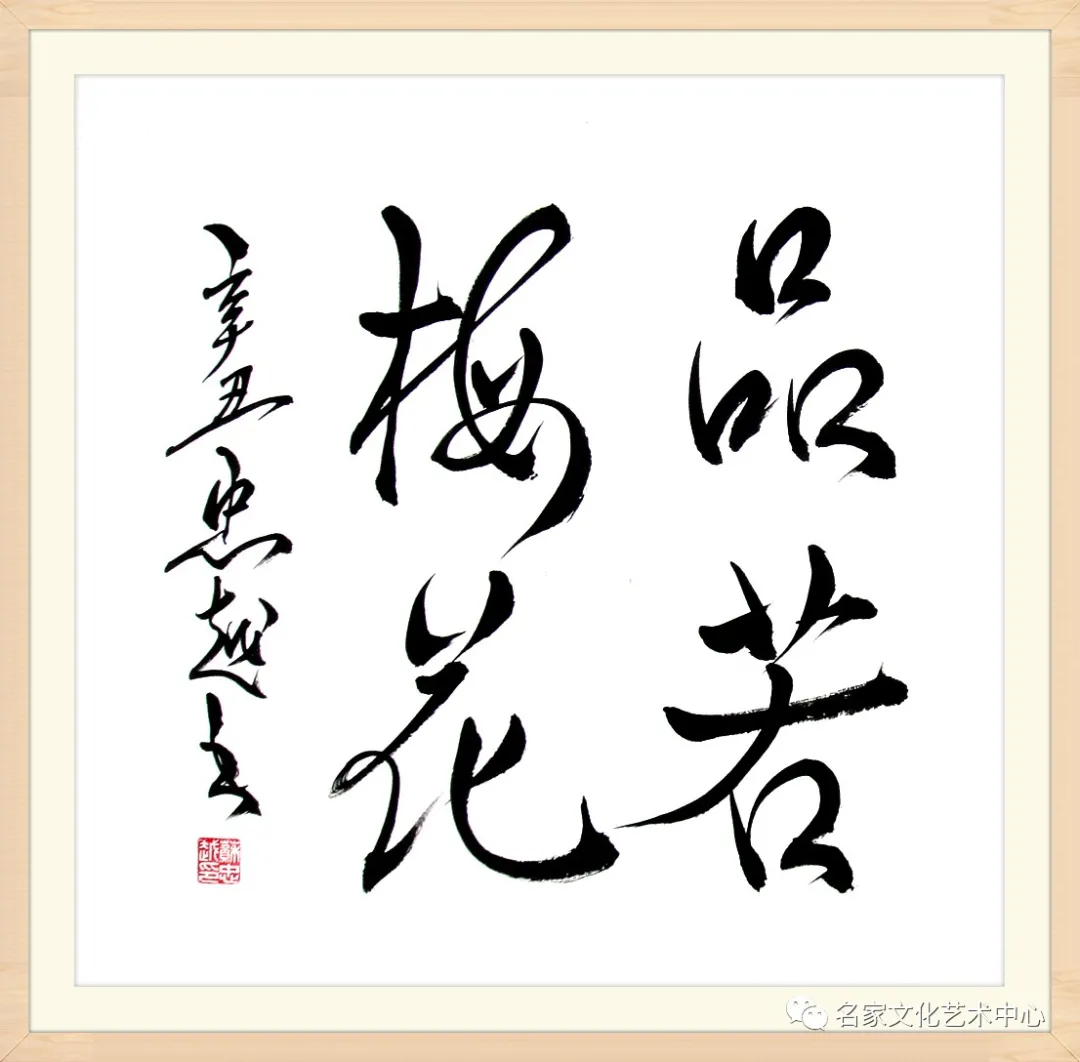 品若
梅花
辛丑忠越书
蘇忠越印
名家文化艺术中心